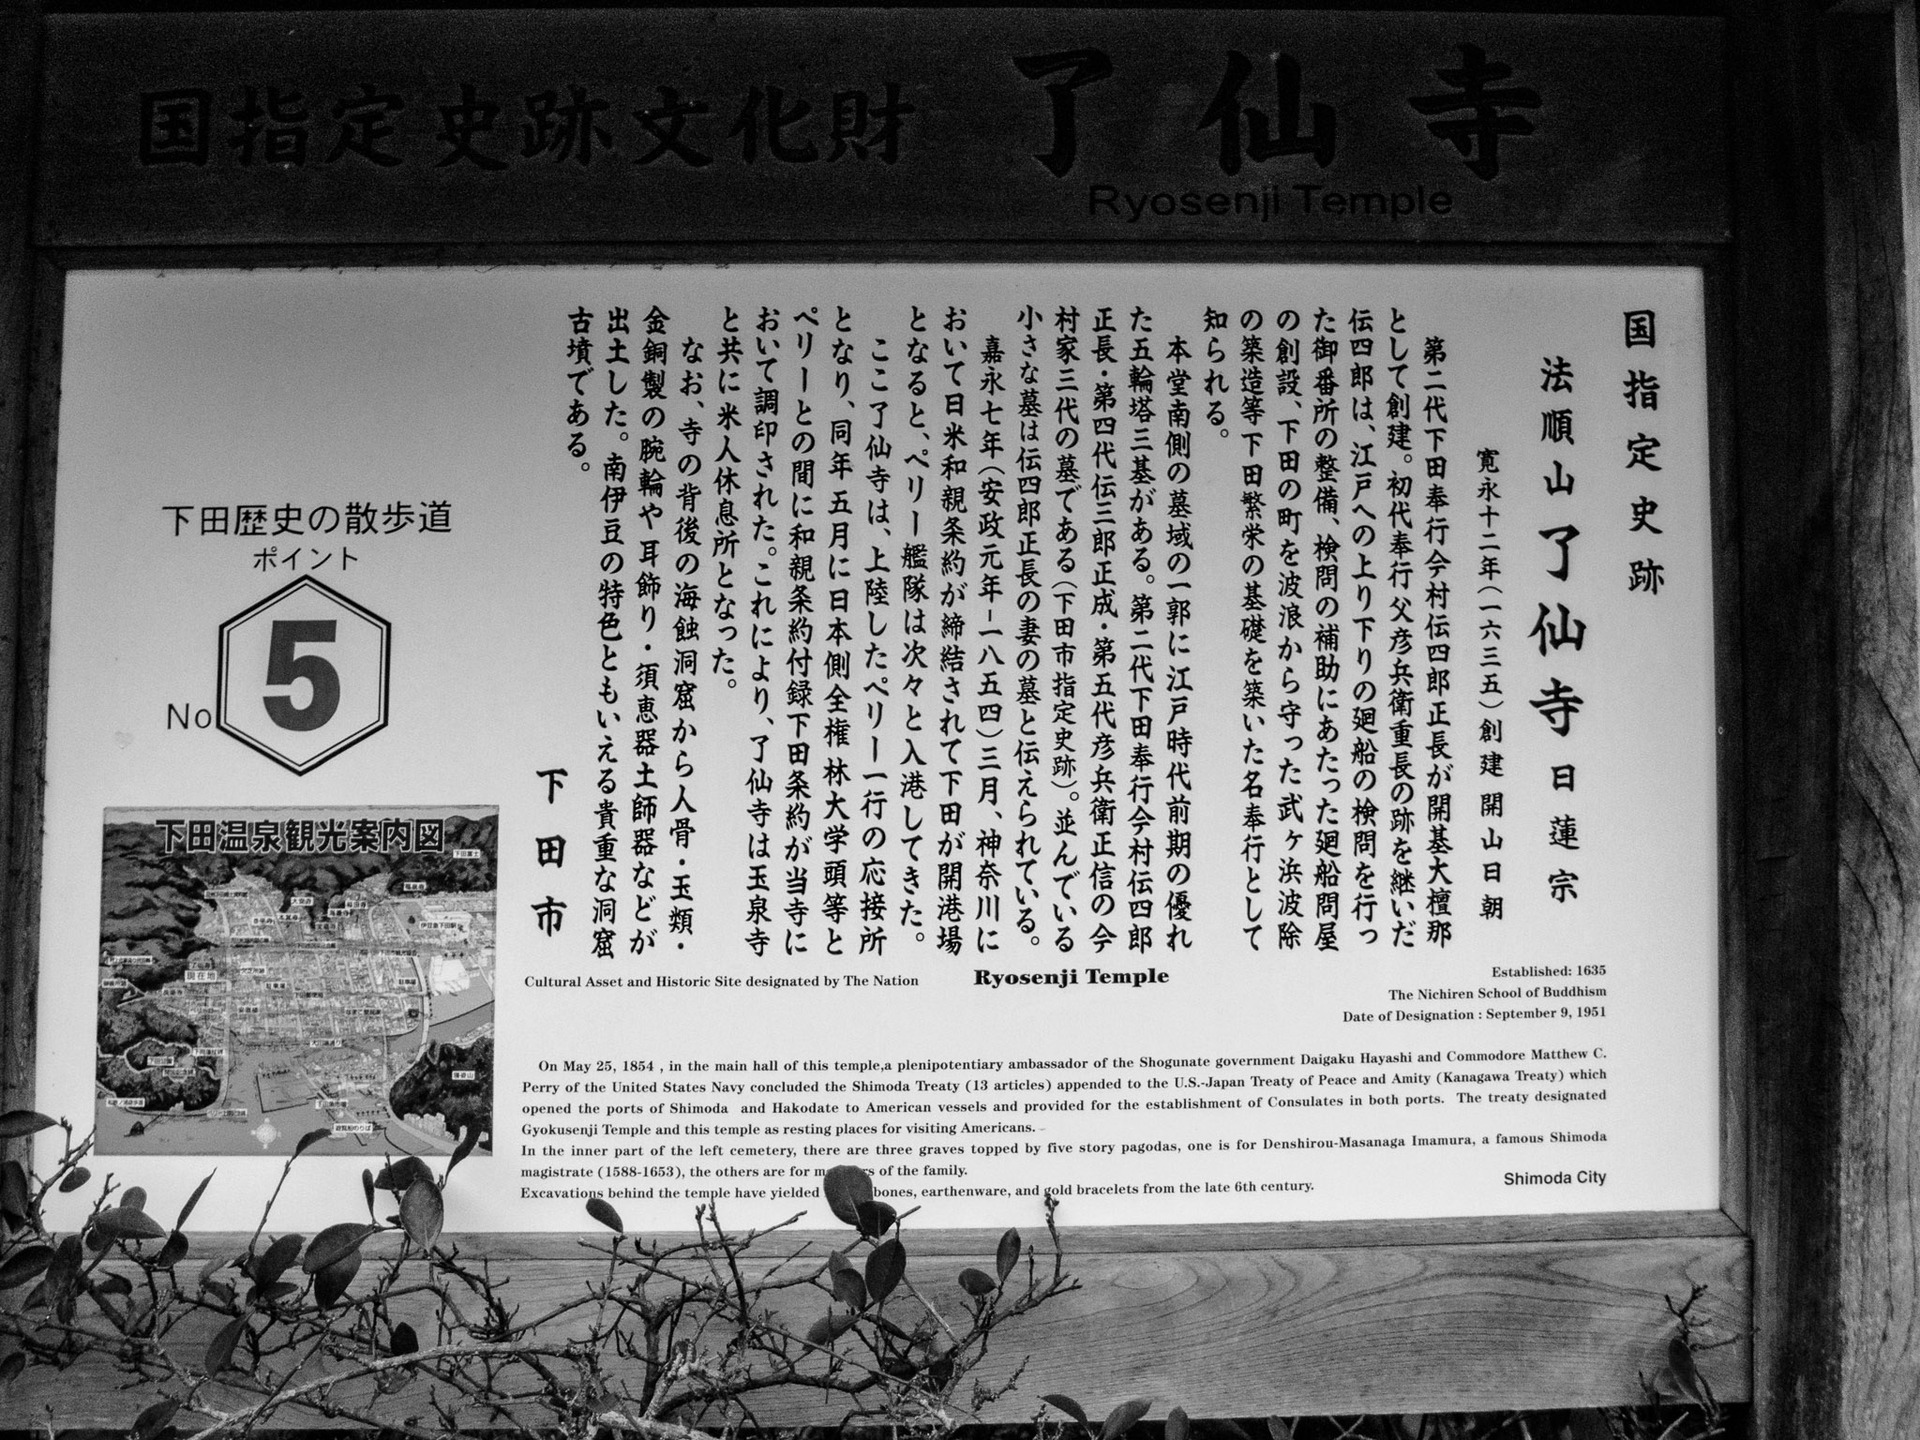 国指定史跡文化財 了仙寺
Ryosenji Temple
国指定史跡
法順山 了仙寺 日蓮宗
寛永十二年(一六三五)創建 開山日朝
第二代下田奉行今村伝四郎正長が開基大檀那
として創建。初代奉行父彦兵衛重長の跡を継いだ
伝四郎は、江戸への上り下りの廻船の検問を行っ
た御番所の整備、検問の補助にあたった廻船問屋
の創設、下田の町を波浪から守った武ヶ浜波除
の築造等下田繁栄の基礎を築いた名奉行として
知られる。
本堂南側の墓域の一郭に江戸時代前期の優れ
た五輪塔三基がある。第二代下田奉行今村伝四郎
正長・第四代伝三郎正成・第五代彦兵衛正信の今
村家三代の墓である(下田市指定史跡)。並んでいる
小さな墓は伝四郎正長の妻の墓と伝えられている。
嘉永七年(安政元年-一八五四)三月、神奈川に
おいて日米和親条約が締結されて下田が開港場
となると、ペリー艦隊は次々と入港してきた。
ここ了仙寺は、上陸したペリー一行の応接所
となり、同年五月に日本側全権林大学頭等と
ペリーとの間に和親条約付録下田条約が当寺に
おいて調印された。これにより、了仙寺は玉泉寺
と共に米人休息所となった。
なお、寺の背後の海蝕洞窟から人骨・玉類・
金銅製の腕輪や耳飾り・須恵器土師器などが
出土した。南伊豆の特色ともいえる貴重な洞窟
古墳である。
下田市
下田歴史の散歩道
ポイント
No 5
下田温泉観光案内図
現在地
Cultural Asset and Historic Site designated by The Nation Ryosenji Temple
Established: 1635
The Nichiren School of Buddhism
Date of Designation : September 9, 1951
On May 25, 1854 , in the main hall of this temple,a plenipotentiary ambassador of the Shogunate government Daigaku Hayashi and Commodore Matthew C.
Perry of the United States Navy concluded the Shimoda Treaty (13 articles) appended to the U.S.-Japan Treaty of Peace and Amity (Kanagawa Treaty) which
opened the ports of Shimoda and Hakodate to American vessels and provided for the establishment of Consulates in both ports. The treaty designated
Gyokusenji Temple and this temple as resting places for visiting Americans.
In the inner part of the left cemetery, there are three graves topped by five story pagodas, one is for Denshirou-Masanaga Imamura, a famous Shimoda
magistrate (1588-1653), the others are for of the family.
Excavations behind the temple have yielded bones, earthenware, and gold bracelets from the late 6th century.
Shimoda City